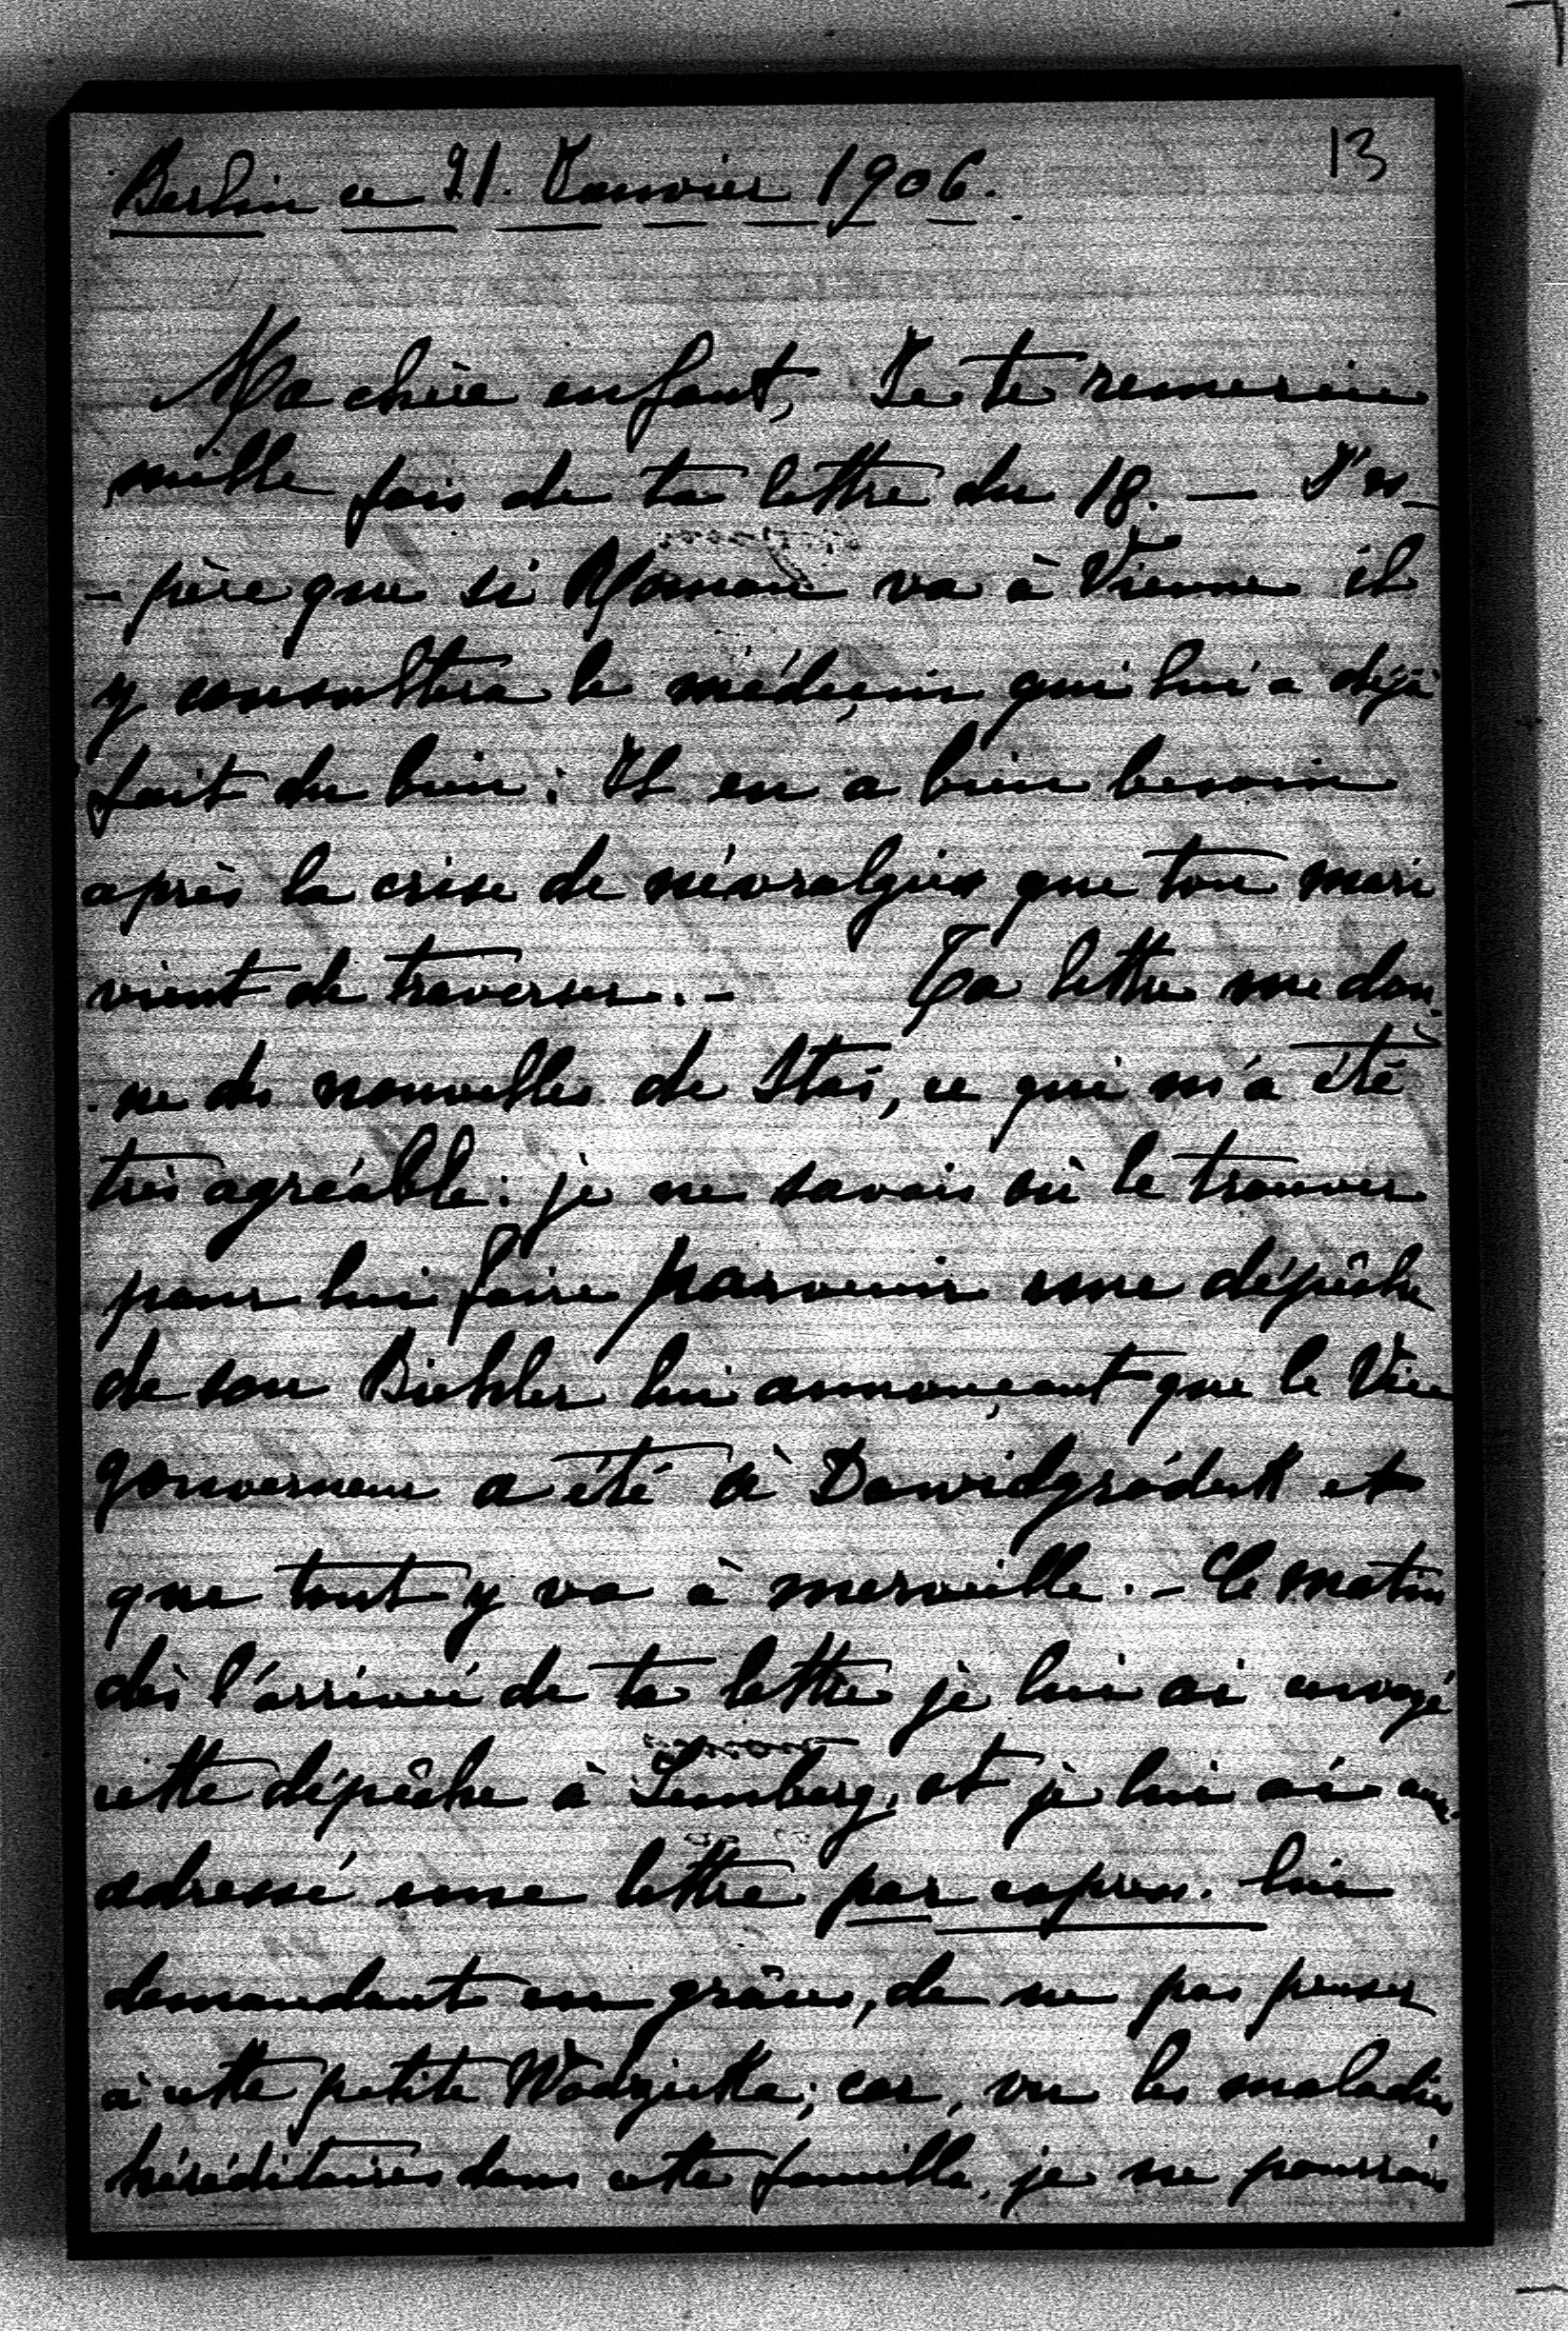 13
Berlin ce 21. Janvier 1906.
Ma chère enfant, Je te remercie
mille fois de ta lettre du 18. — J'es-
-père que si Roman va à Vienne il
y consultera le médeçin qui lui a déjà
fait du bien: Il en a bien besoin
après la crise de névralgies que ton mari
vient de traverser. — Ta lettre me don-
ne des nouvelles de Stas, ce qui m'a été
très agréable: je ne savais où le trouver
pour lui faire parvenir une dépêche
de son Biehler lui annonçant que le Vice
gouverneur a été à Dawidgródek et
que tout y va à merveille. — Ce matin
dès l'arrivée de ta lettre je lui ai envoyé
cette dépêche à Lemberg, et je lui ai
adressé une lettre par express. lui
demandant en grâce, de ne pas penser
à cette petite Wodzicka; car, vu les maladies
héréditaires dans cette famille, je ne pourrais